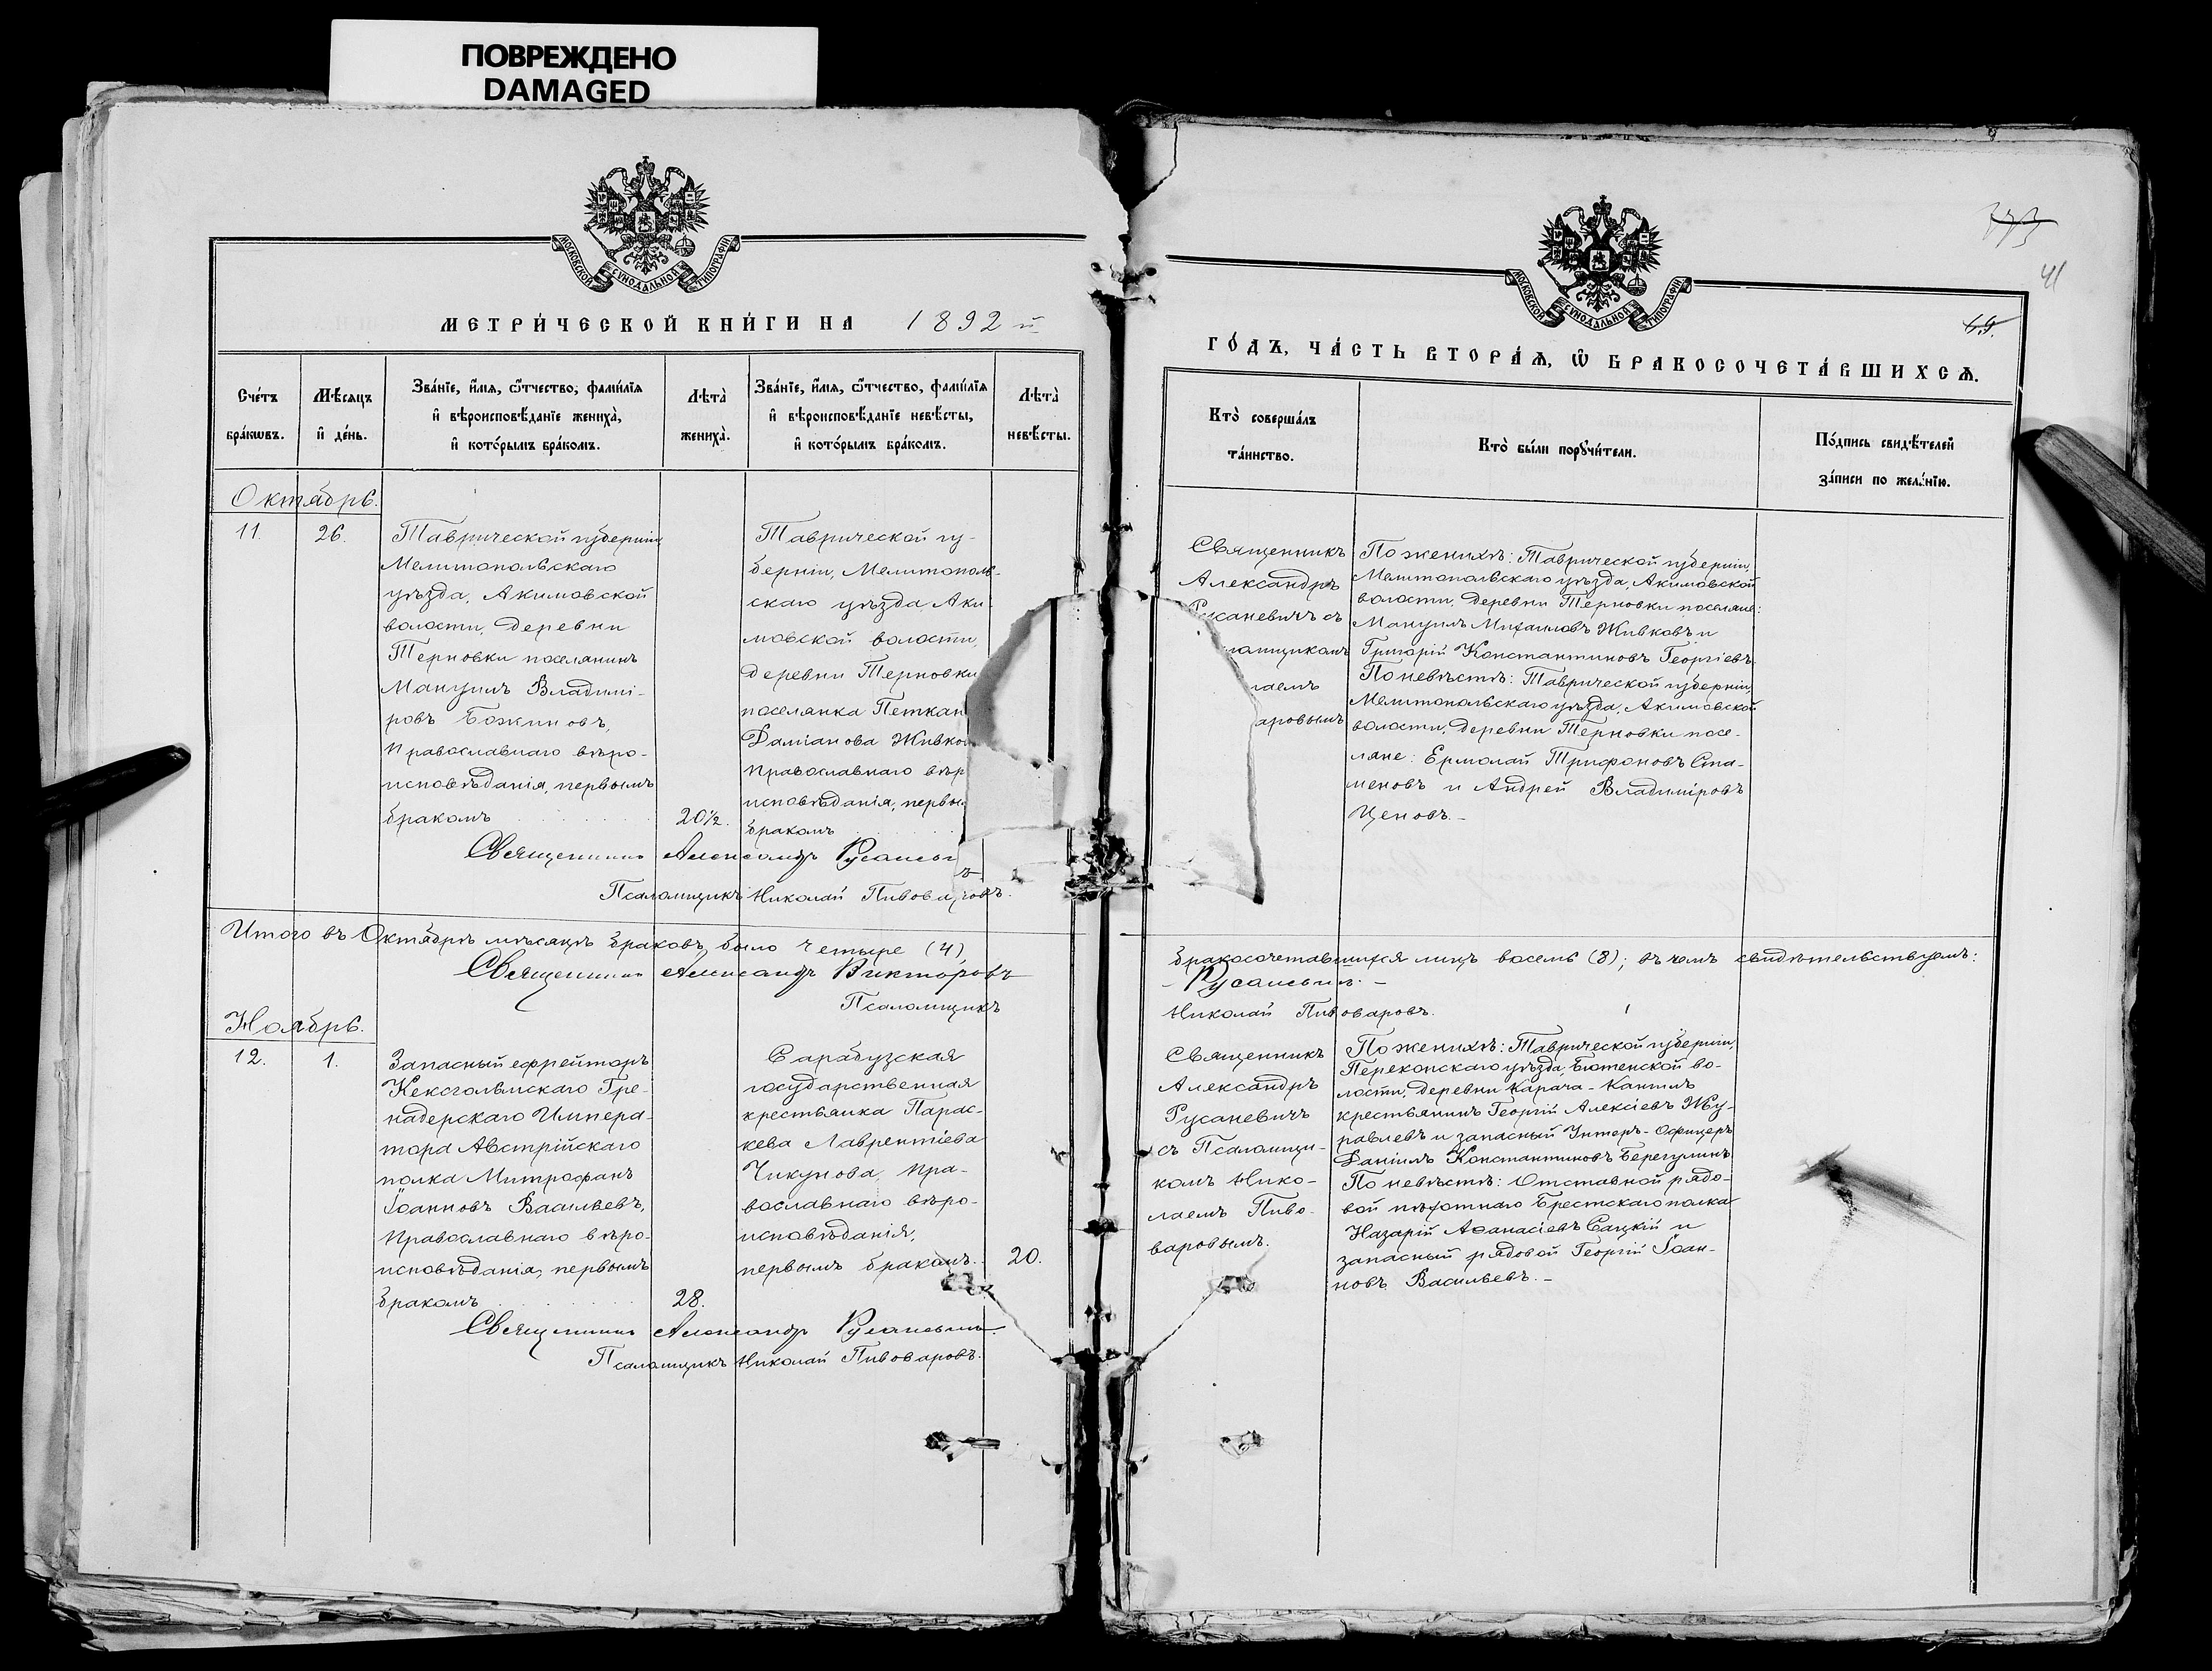 ПОВРЕЖДЕНО
DAMAGED
МОСКОВСКОЙ СѴНОДАЛЬНОЙ ТИПОГРАФІИ
МЕТРИ́ЧЕСКОЙ КНИ́ГИ НА 1892 й
Сче́тъ бра́кѡвъ.
Мѣ́сяцъ и҆ де́нь.
Зва́нїе, и҆́мя, ѻ҆́тчество, фами́лїя
и҆ вѣроисповѣ́данїе жениха̀,
и҆ кото́рымъ бра́комъ.
Лѣта̀ жениха̀.
Зва́нїе, и҆́мя, ѻ҆́тчество, фами́лїя
и҆ вѣроисповѣ́данїе невѣ́сты,
и҆ кото́рымъ бра́комъ.
Лѣта̀ невѣ́сты.
Октябрь.
11.
26.
Таврической губерніи
Мелитопольскаго
уѣзда, Акимовской
волости, деревни
Терновки поселянинъ
Мануилъ Владимі-
ровъ Божиновъ,
Православнаго вѣро-
исповѣданія, первымъ
бракомъ
20½.
Таврической гу-
берніи, Мелитополь-
скаго уѣзда Аки-
мовской волости,
деревни Терновки
поселянка Петкан
Даміанова Живко
Православнаго вѣр
исповѣданія, первы
бракомъ
Священникъ Александръ Русаневи ъ
Псаломщикъ Николай Пивоваровъ.
Итого въ Октябрѣ мѣсяцѣ браковъ было четыре (4)
Священникъ Александръ Викторовъ
Псаломщикъ
Ноябрь.
12.
1.
Запасный ефрейторъ
Кексгольмскаго Гре-
надерскаго Импера-
тора Австрійскаго
полка Митрофанъ
Іоанновъ Васильевъ,
Православнаго вѣро-
исповѣданія, первымъ
бракомъ
28.
Сарабузская
государственная
крестьянка Парас-
кева Лаврентіева
Чикунова, Пра-
вославнаго вѣро-
исповѣданія,
первымъ бракомъ.
20.
Священникъ Александръ Русаневичъ.
Псаломщикъ Николай Пивоваровъ.
41
69.
МОСКОВСКОЙ СѴНОДАЛЬНОЙ ТИПОГРАФІИ
ГО́ДЪ, ЧА́СТЬ ВТОРА́Я, Ѡ҆ БРАКОСОЧЕТА́ВШИХСЯ.
Кто̀ соверша́лъ
та́инство.
Кто̀ бы́ли порꙋчи́тели.
По́дпись свидѣ́телей
за́писи по жела́нїю.
Священникъ
Александръ
Русаневичъ съ
ломщикомъ
лаемъ
аровымъ
По женихѣ: Таврической губерніи,
Мелитопольскаго уѣзда, Акимовской
волости, деревни Терновки поселяне:
Мануилъ Михаиловъ Живковъ и
Григорій Константиновъ Георгіевъ.
По невѣстѣ: Таврической губерніи,
Мелитопольскаго уѣзда, Акимовской
волости, деревни Терновки посе-
ляне: Ермолай Трифоновъ Ста-
меновъ и Андрей Владиміровъ
Ценовъ. –
бракосочетавшихся лицъ восемь (8); въ чемъ свидѣтельствуемъ:
– Русаневичъ. –
Николай Пивоваровъ.
Священникъ
Александръ
Русаневичъ
съ Псаломщи-
комъ Нико-
лаемъ Пиво-
варовымъ.
По женихѣ: Таврической губерніи,
Перекопскаго уѣзда, Бютенской во-
лости, деревни Карача-Кангилъ
крестьянинъ Георгій Алексіевъ Жу-
равлевъ и запасный Унтеръ-Офицеръ
Даніилъ Константиновъ Берегулинъ
По невѣстѣ: Отставной рядо-
вой пѣхотнаго Брестскаго полка
Назарій Аѳанасіевъ Сацкій и
запасный рядовой Георгій Іоан-
новъ Васильевъ. –